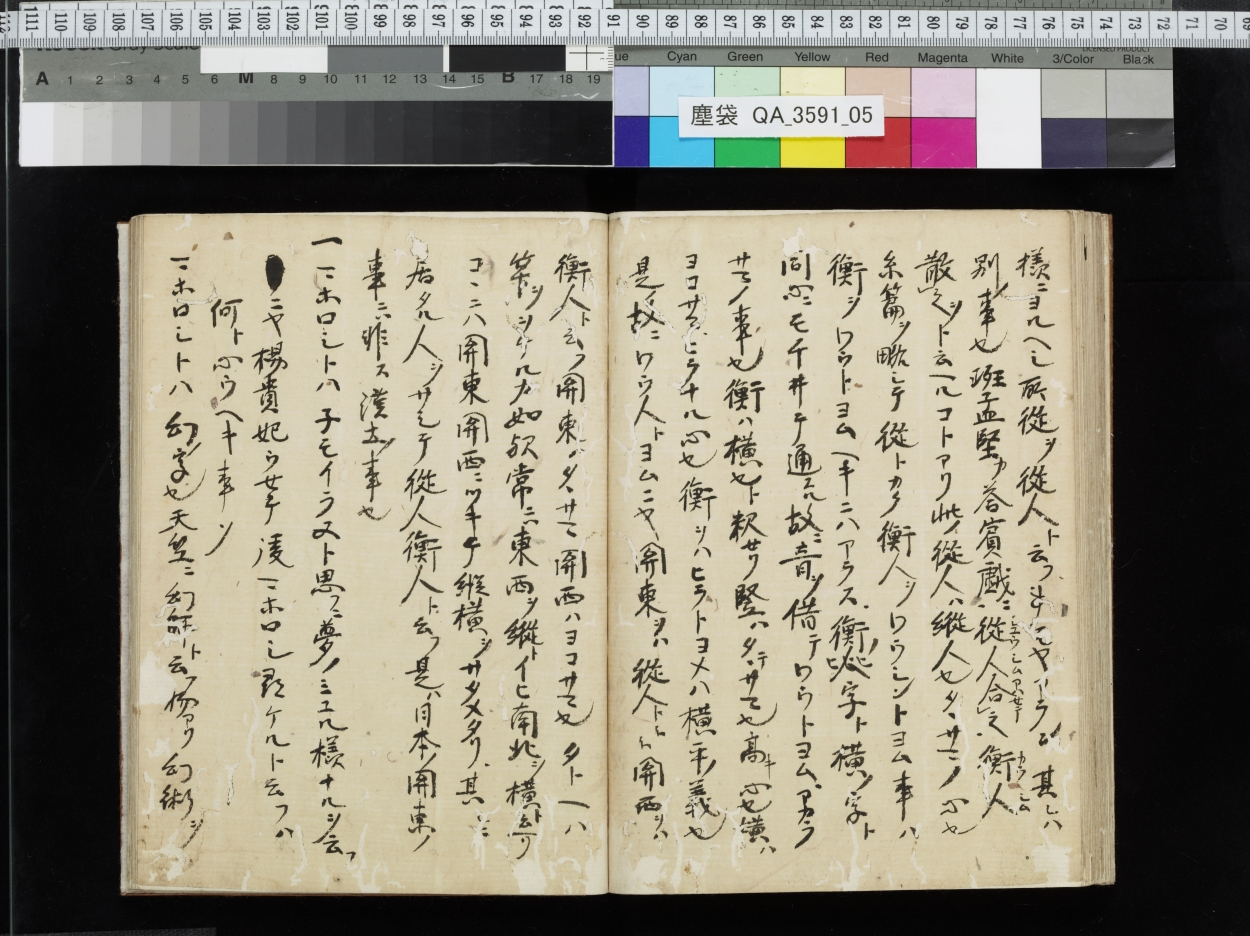 塵袋 QA_3591_05
Cyan Green Yellow Red Magenta White 3/Color Black
A 1 2 3 4 5 6 M 8 9 10 11 12 13 14 15 B 17 18 19
様ニヨルヘシ所従ヲ従人ト云フ
別ノ事也班孟堅カ荅賓戯ニ従人合之衡人
散之ト云ヘルコトアリ此ノ従人ハ縦人也タヽサマノ心也
糸篇ヲ略シテ従トカク衡人ヲワウシントヨム事ハ
衡ヲワウトヨムヘキニハアラス衡ノ字ト横ノ字ト
同心ニモチヰテ通スル故ニ音ヲ借テワウトヨム
サマノ事也衡ハ横也ト釈セリ竪ハタテサマ也高キ心也横ハ
ヨコサマヒラナル心也衡ヲハヒラトヨメハ横平ノ義也
是ノ故ニワウ人トヨムニヤ関東ヲハ従人ト云ヒ関西ヲハ
衡人ト云フ関東ハタヽサマ関西ハヨコサマ也タトヘハ
算ヲヲケルカ如欤常ニハ東西ヲ縦トイヒ南北ヲ横ト云ヘリ
コヽニハ関東関西ニツキテ縦横ヲサタメタリ其ニ
居タル人ヲサシテ従人衡人ト云フ是ハ日本ノ関東ノ
事ニハ非ス漢土ノ事也
一マホロシトハ子モイラヌト思フニ夢ノミエル様ナルヲ云フ
ニヤ楊貴妃ウセテ後マホロシ尋ケルト云フハ
何ト心ウヘキ事ソ
マホロシトハ幻ノ字也天竺ニ幻師ト云物アリ幻術ヲ